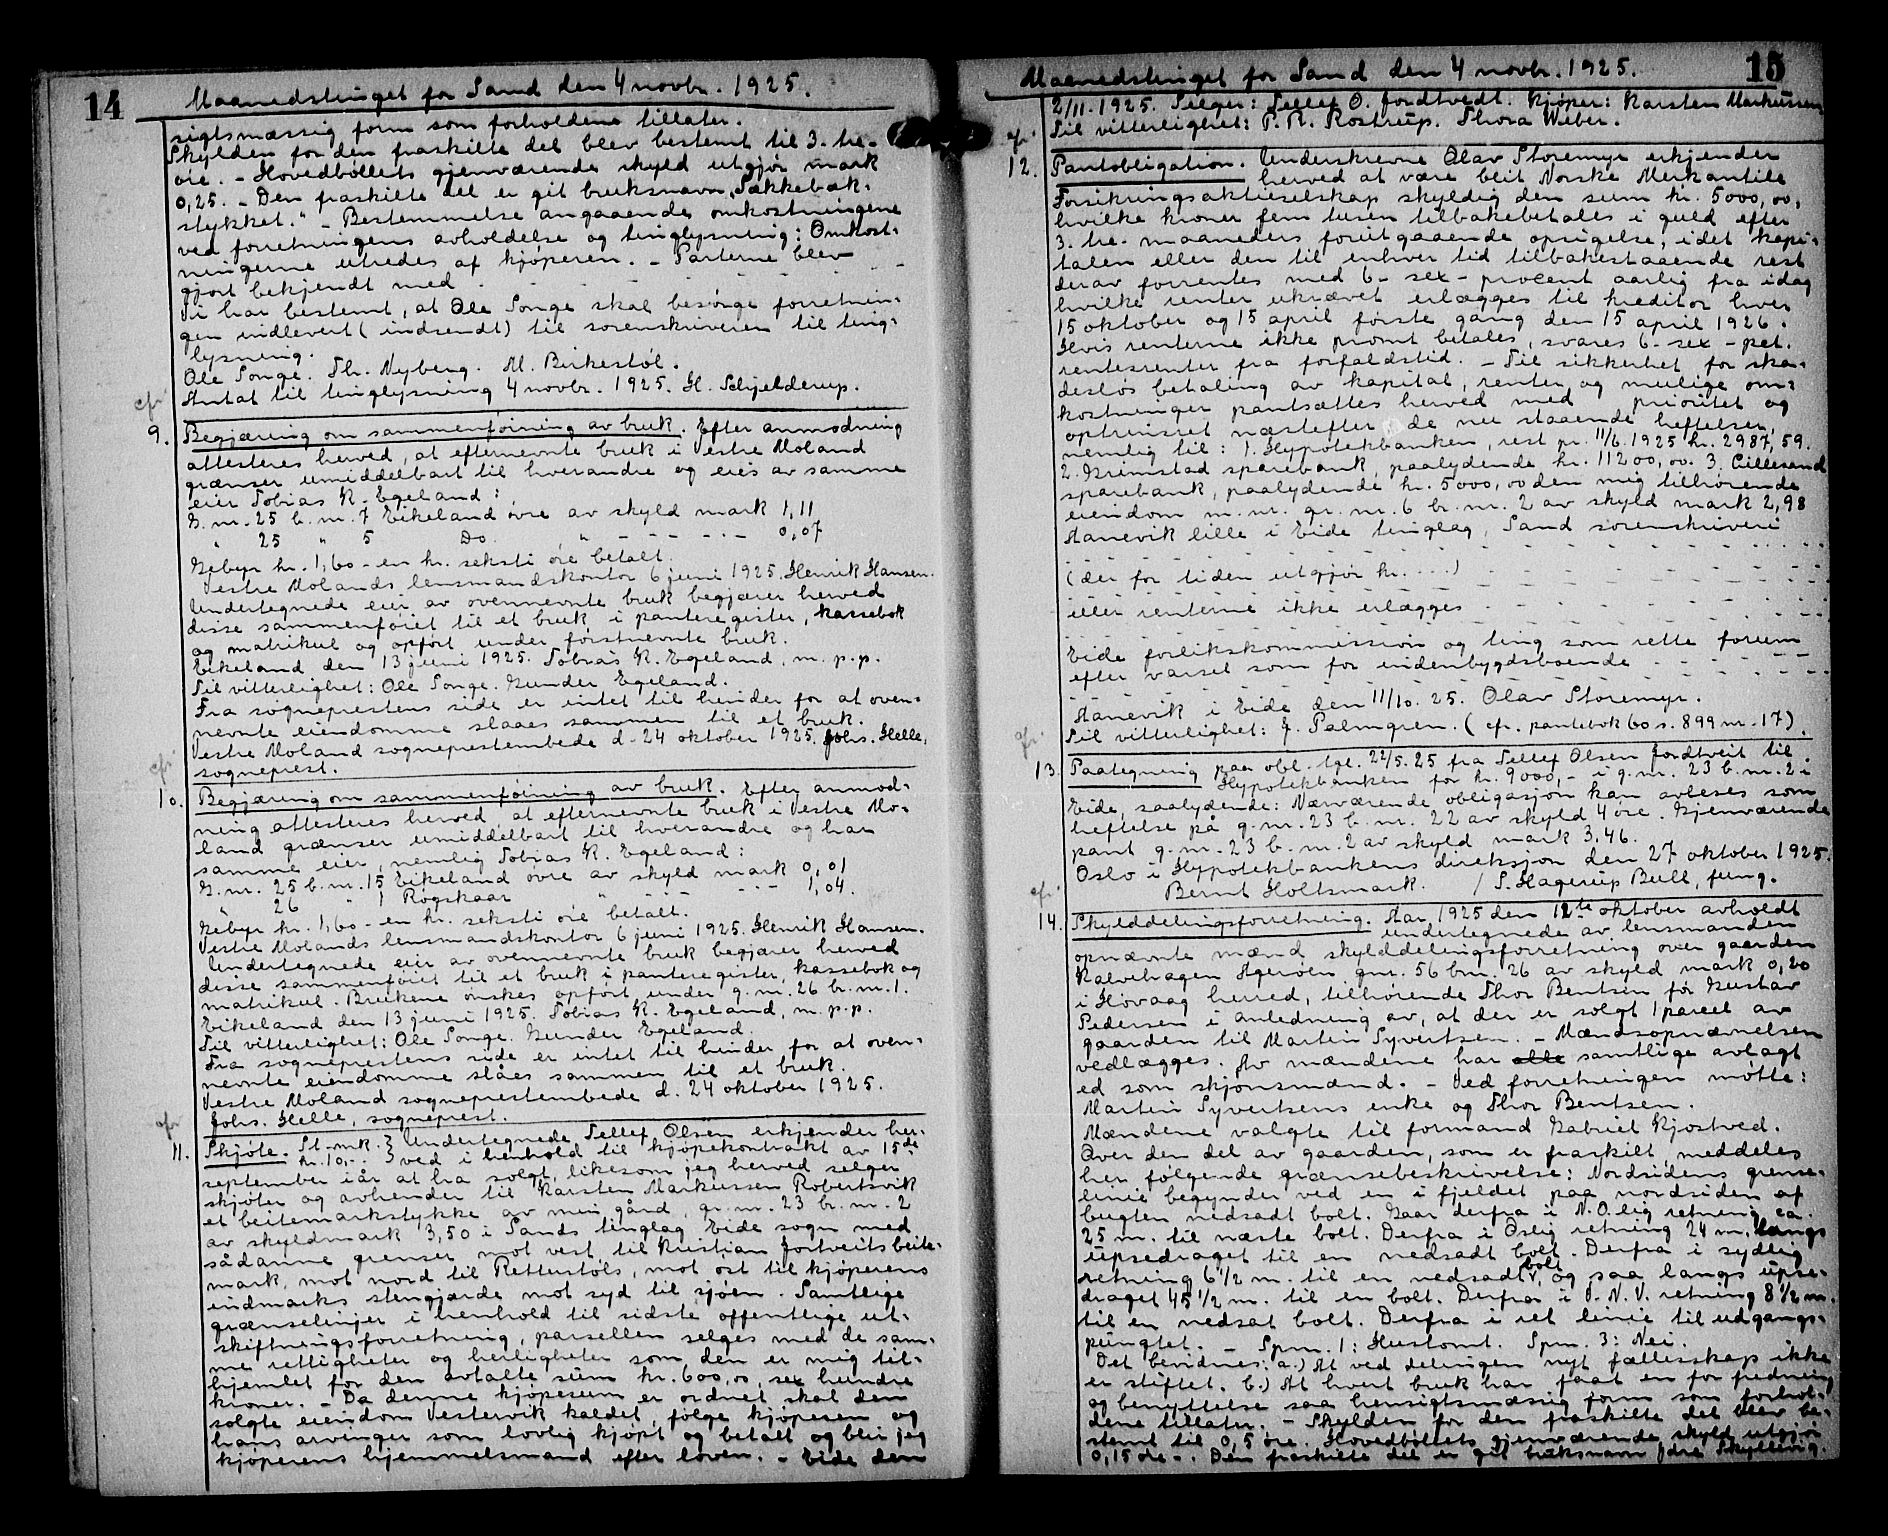 14
Maanedstinget for Sand den 4 novbr. 1925.
sigtsmæssig form som forholdene tillater.
Skylden for den fraskilte del blev bestemt til 3 - tre -
øre. - Hovedbøllets gjenværende skyld utgjør mark
0,25. - Den fraskilte del er git bruksnavn "Sækkebæk-
stykket." - Bestemmelse angaaende omkostningene
ved forretningens avholdelse og tinglysning: Omkost-
ningerne utredes af kjøperen. - Parterne blev
gjort bekjendt med - - - - - - - -
Vi har bestemt, at Ole Songe skal besørge forretnin-
gen indlevert (indsendt) til sorenskriveren til ting-
lysning.
Ole Songe. Th. Nyberg. M. Birkestøl.
Antat til tinglysning 4 novbr. 1925. H. Schjelderup.
cfr.
9. Begjæring om sammenføining av bruk. Efter anmodning
attesteres herved, at efternevnte bruk i Vestre Moland
grænser umiddelbart til hverandre og eies av samme
eier Tobias K. Egeland:
G. nr. 25 b. nr. 7 Eikeland øvre av skyld mark 1,11
" 25 " 5 Do. " - - - - - 0,07
Gebyr kr. 1,60 - en kr. seksti øre betalt.
Vestre Molands lensmandskontor 6 juni 1925. Henrik Hansen.
Undertegnede eier av ovennevnte bruk begjærer herved
disse sammenføiet til et bruk i panteregister, kassebok
og matrikul og opført under førstnevnte bruk.
Eikeland den 13 juni 1925. Tobias K. Egeland, m. p. p.
Til vitterlighet: Ole Songe. Gunder Egeland.
Fra sogneprestens side er intet til hinder for at oven-
nevnte eiendomme slaaes sammen til et bruk.
Vestre Moland sogneprestembede d. 24 oktober 1925. Johs. Helle,
sogneprest.
cfr.
10. Begjæring om sammenføining av bruk. Efter anmod-
ning attesteres herved, at efternevnte bruk i Vestre Mo-
land grænser umiddelbart til hverandre og har
samme eier, nemlig Tobias K. Egeland:
G. nr. 25 b. nr. 15 Eikeland øvre av skyld mark 0,01
" 26 " 1 Røgskaar " - - - - - 1,04.
Gebyr kr. 1,60 - en kr. seksti øre betalt.
Vestre Molands lensmandskontor 6 juni 1925. Henrik Hansen.
Undertegnede eier av ovennevnte bruk begjærer herved
disse sammenføiet til et bruk i panteregister, kassebok og
matrikul. Brukene ønskes opført under g. nr. 26 br. nr. 1.
Eikeland den 13 juni 1925. Tobias K. Egeland, m. p. p.
Til vitterlighet: Ole Songe. Gunder Egeland.
Fra sogneprestens side er intet til hinder for at oven-
nevnte eiendomme slåes sammen til et bruk.
Vestre Moland sogneprestembede d. 24 oktober 1925.
Johs. Helle, sogneprest.
cfr.
11. Skjøte. St. mk. kr. 10,- } Undertegnede Tellef Olsen erkjender her-
ved i henhold til kjøpekontrakt av 15de
september iår at ha solgt, likesom jeg herved selger
skjøter og avhender til Karsten Markussen Robertsvik
et beitemarkstykke av min gård, gr. nr. 23 br. nr. 2
av skyldmark 3,50 i Sands tinglag Eide sogn med
sådanne grenser mot vest til Kristian Jortveits beite-
mark, mot nord til Retterstøls, mot øst til kjøperens
indmarks stengjærde mot syd til sjøen. Samtlige
grænselinjer i henhold til sidste offentlige ut-
skiftningsforretning, parsellen selges med de sam-
me rettigheter og herligheter som den er mig til-
hjemlet for den avtalte sum kr. 600,00, sex hundre
kroner. - Da denne kjøpesum er ordnet skal den
solgte eiendom Vestervik kaldet, følge kjøperen og
hans arvinger som lovlig kjøpt og betalt og blir jeg
kjøperens hjemmelsmand efter loven. - Eide den
15
Maanedstinget for Sand den 4 novbr. 1925.
2/11. 1925. Selger: Tellef O. Jordtvedt. Kjøper: Karsten Markussen
Til vitterlighet: P. R. Rostrup. Thora Weber.
cfr.
12. Pantobligation. Underskrevne Olav Storemyr erkjender
herved at være blit Norske Merkantile
Forsikringsaktieselskap skyldig den sum kr. 5000,00,
hvilke kroner fem tusen tilbakebetales i guld efter
3 - tre - maaneders forutgaaende opsigelse, idet kapi-
talen eller den til enhver tid tilbakestaaende rest
derav forrentes med 6 - sex - procent aarlig fra idag
hvilke renter ukrævet erlægges til kreditor hver
15 oktober og 15 april første gang den 15 april 1926.
Hvis renterne ikke promt betales, svares 6 - sex - pct.
rentesrenter fra forfaldstid. - Til sikkerhet for ska-
desløs betaling av kapital, renter og mulige om-
kostninger pantsættes herved med prioritet og
optrinsret næstefter de nu staaende heftelser,
nemlig til: 1. Hypotekbanken, rest pr. 11/6. 1925 kr. 2987,59.
2. Grimstad sparebank, paalydende kr. 11200,00. 3. Lillesand
sparebank, paalydende kr. 5000,00 den mig tilhørende
eiendom m. m. gr. nr. 6 br. nr. 2 av skyld mark 2,98
Hanevik lille i Eide tinglag, Sand sorenskriveri
- - - - - - - - - - - - - - - -
(der for tiden utgjør kr. ....) - - - - - - - -
eller renterne ikke erlægges - - - - - - - -
- - - - - - - - - - - - - - - -
Eide forlikskommission og ting som rette forum
efter varsel som for indenbygdsboende - - - - -
- - - - - - - - - - - - - - - -
Hanevik i Eide den 11/10. 25. Olav Storemyr.
Til vitterlighet: J. Palmgren. (cfr. pantebok 60 s. 899 nr. 17).
cfr.
13. Paategning paa obl. tgl. 22/5. 25 fra Tellef Olsen Jordtveit til
Hypotekbanken for kr. 9000,- i g. nr. 23 b. nr. 2 i
Eide, saalydende: Nærværende obligasjon kan avleses som
heftelse på g. nr. 23 b. nr. 22 av skyld 4 øre. Gjenværende
pant g. nr. 23 b. nr. 2 av skyld mark 3,46.
Oslo i Hypotekbankens direksjon den 27 oktober 1925.
Bernt Holtsmark. / S. Hagerup Bull, fung.
cfr.
14. Skylddelingsforretning. Aar 1925 den 12te oktober avholdt
undertegnede av lensmanden
opnævnte mænd skylddelingsforretning over gaarden
Kalvehagen Agerøen gnr. 56 bnr. 26 av skyld mark 0,20
i Høvaag herred, tilhørende Thor Bentsen for Gustav
Pedersen i anledning av, at der er solgt 1 parcel av
gaarden til Martin Syvertsen. - Mændsopnævnelsen
vedlægges. Av mændene har alle samtlige avlagt
ed som skjønsmænd. - Ved forretningen møtte:
Martin Syvertsens enke og Thor Bentsen.
Mændene valgte til formand Gabriel Kjøstved.
Over den del av gaarden, som er fraskilt, meddeles
her følgende grænsebeskrivelse: Nordsidens grense-
linie begynder ved en i fjeldet paa nordsiden af
bugten nedsadt bolt. Gaar derfra i N.O.lig retning ca.
25 m. til næste bolt. Derfra i Øslig retning 24 m. langs
upsedraget til en nedsadt bolt. Derfra i sydlig
retning 6 1/2 m. til en nedsadt bolt, og saa langs upse-
draget 45 1/2 m. til en bolt. Derfra i V. N. V. retning 8 1/2 m.
til en nedsat bolt. Derfra i ret linie til udgangs-
pungtet. - Spm. 1: Hustomt. Spm. 3: Nei.
Det bevidnes: a.) At ved delingen nyt fællesskap ikke
er stiftet. b.) At hvert bruk har faat en for fredning
og benyttelse saa hensigtsmæssig form som forhol-
dene tillater. - Skylden for den fraskilte del blev be-
stemt til 0,5 øre. Hovedbøllets gjenværende skyld utgjør
0,15 øre -. Den fraskilte del er git bruksnavn Skyllevig.